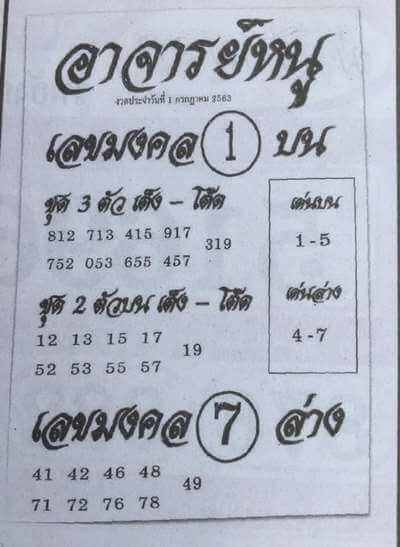 อาจารย์หนู
งวดประจำวันที่ 1 กรกฎาคม 2563
เลขมงคล 1 บน
ชุด 3 ตัว เต็ง – โต๊ด
812 713 415 917
319
752 053 655 457
เด่นบน
1-5
เด่นล่าง
4-7
ชุด 2 ตัวบน เต็ง – โต๊ด
12 13 15 17
19
52 53 55 57
เลขมงคล 7 ล่าง
41 42 46 48
49
71 72 76 78